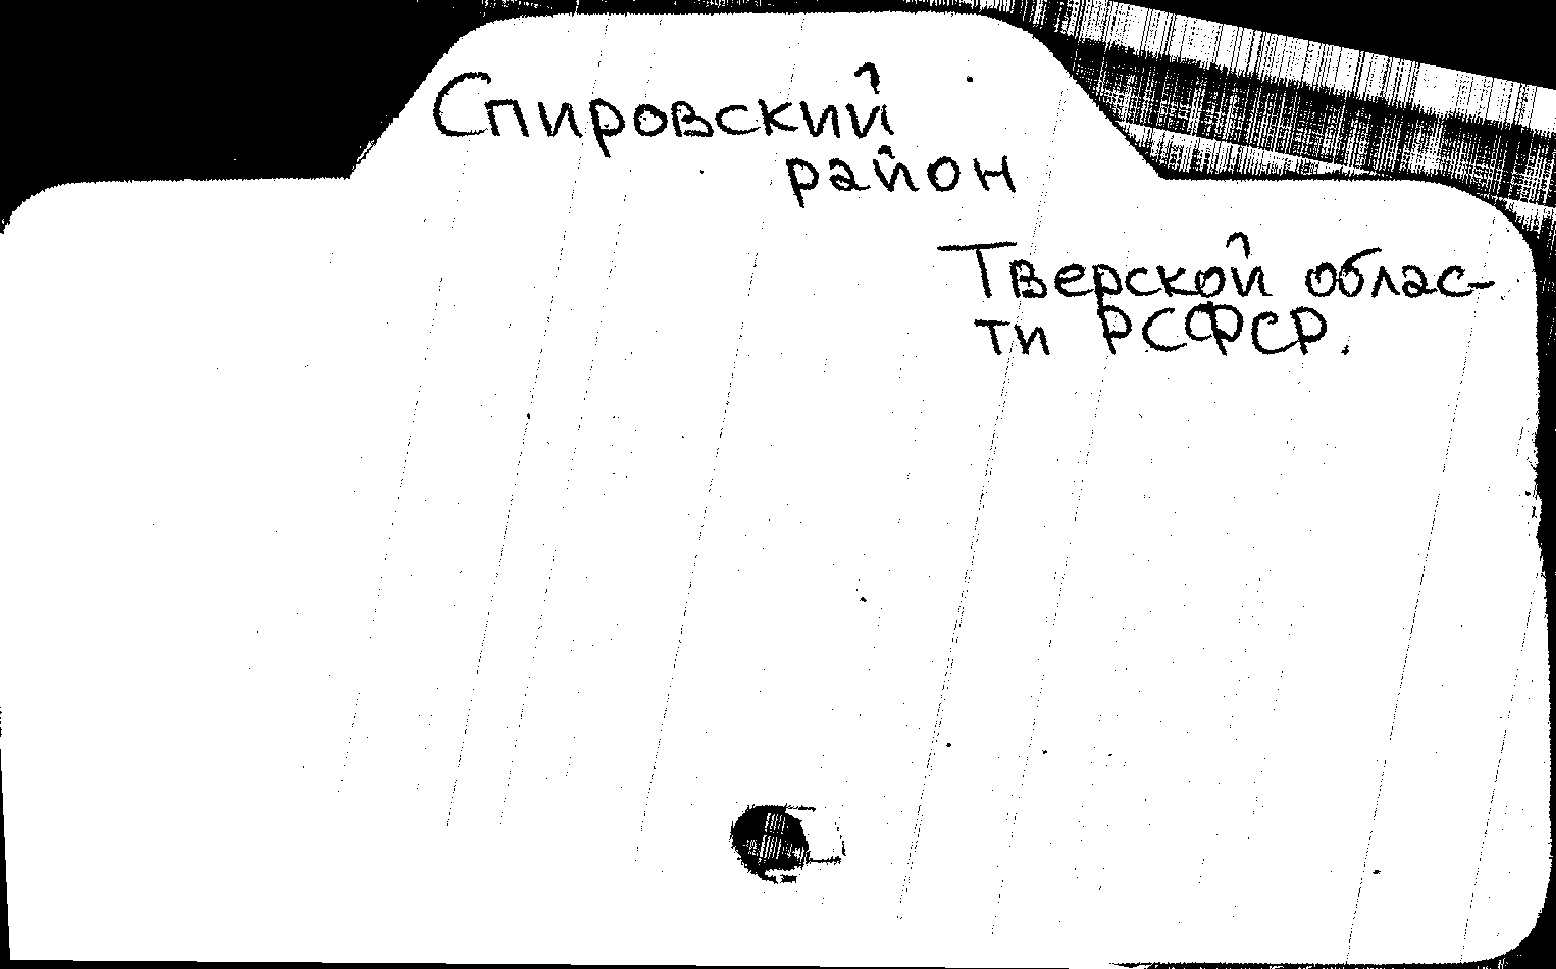 Спировский
район
Тверской облас-
ти РСФСР.